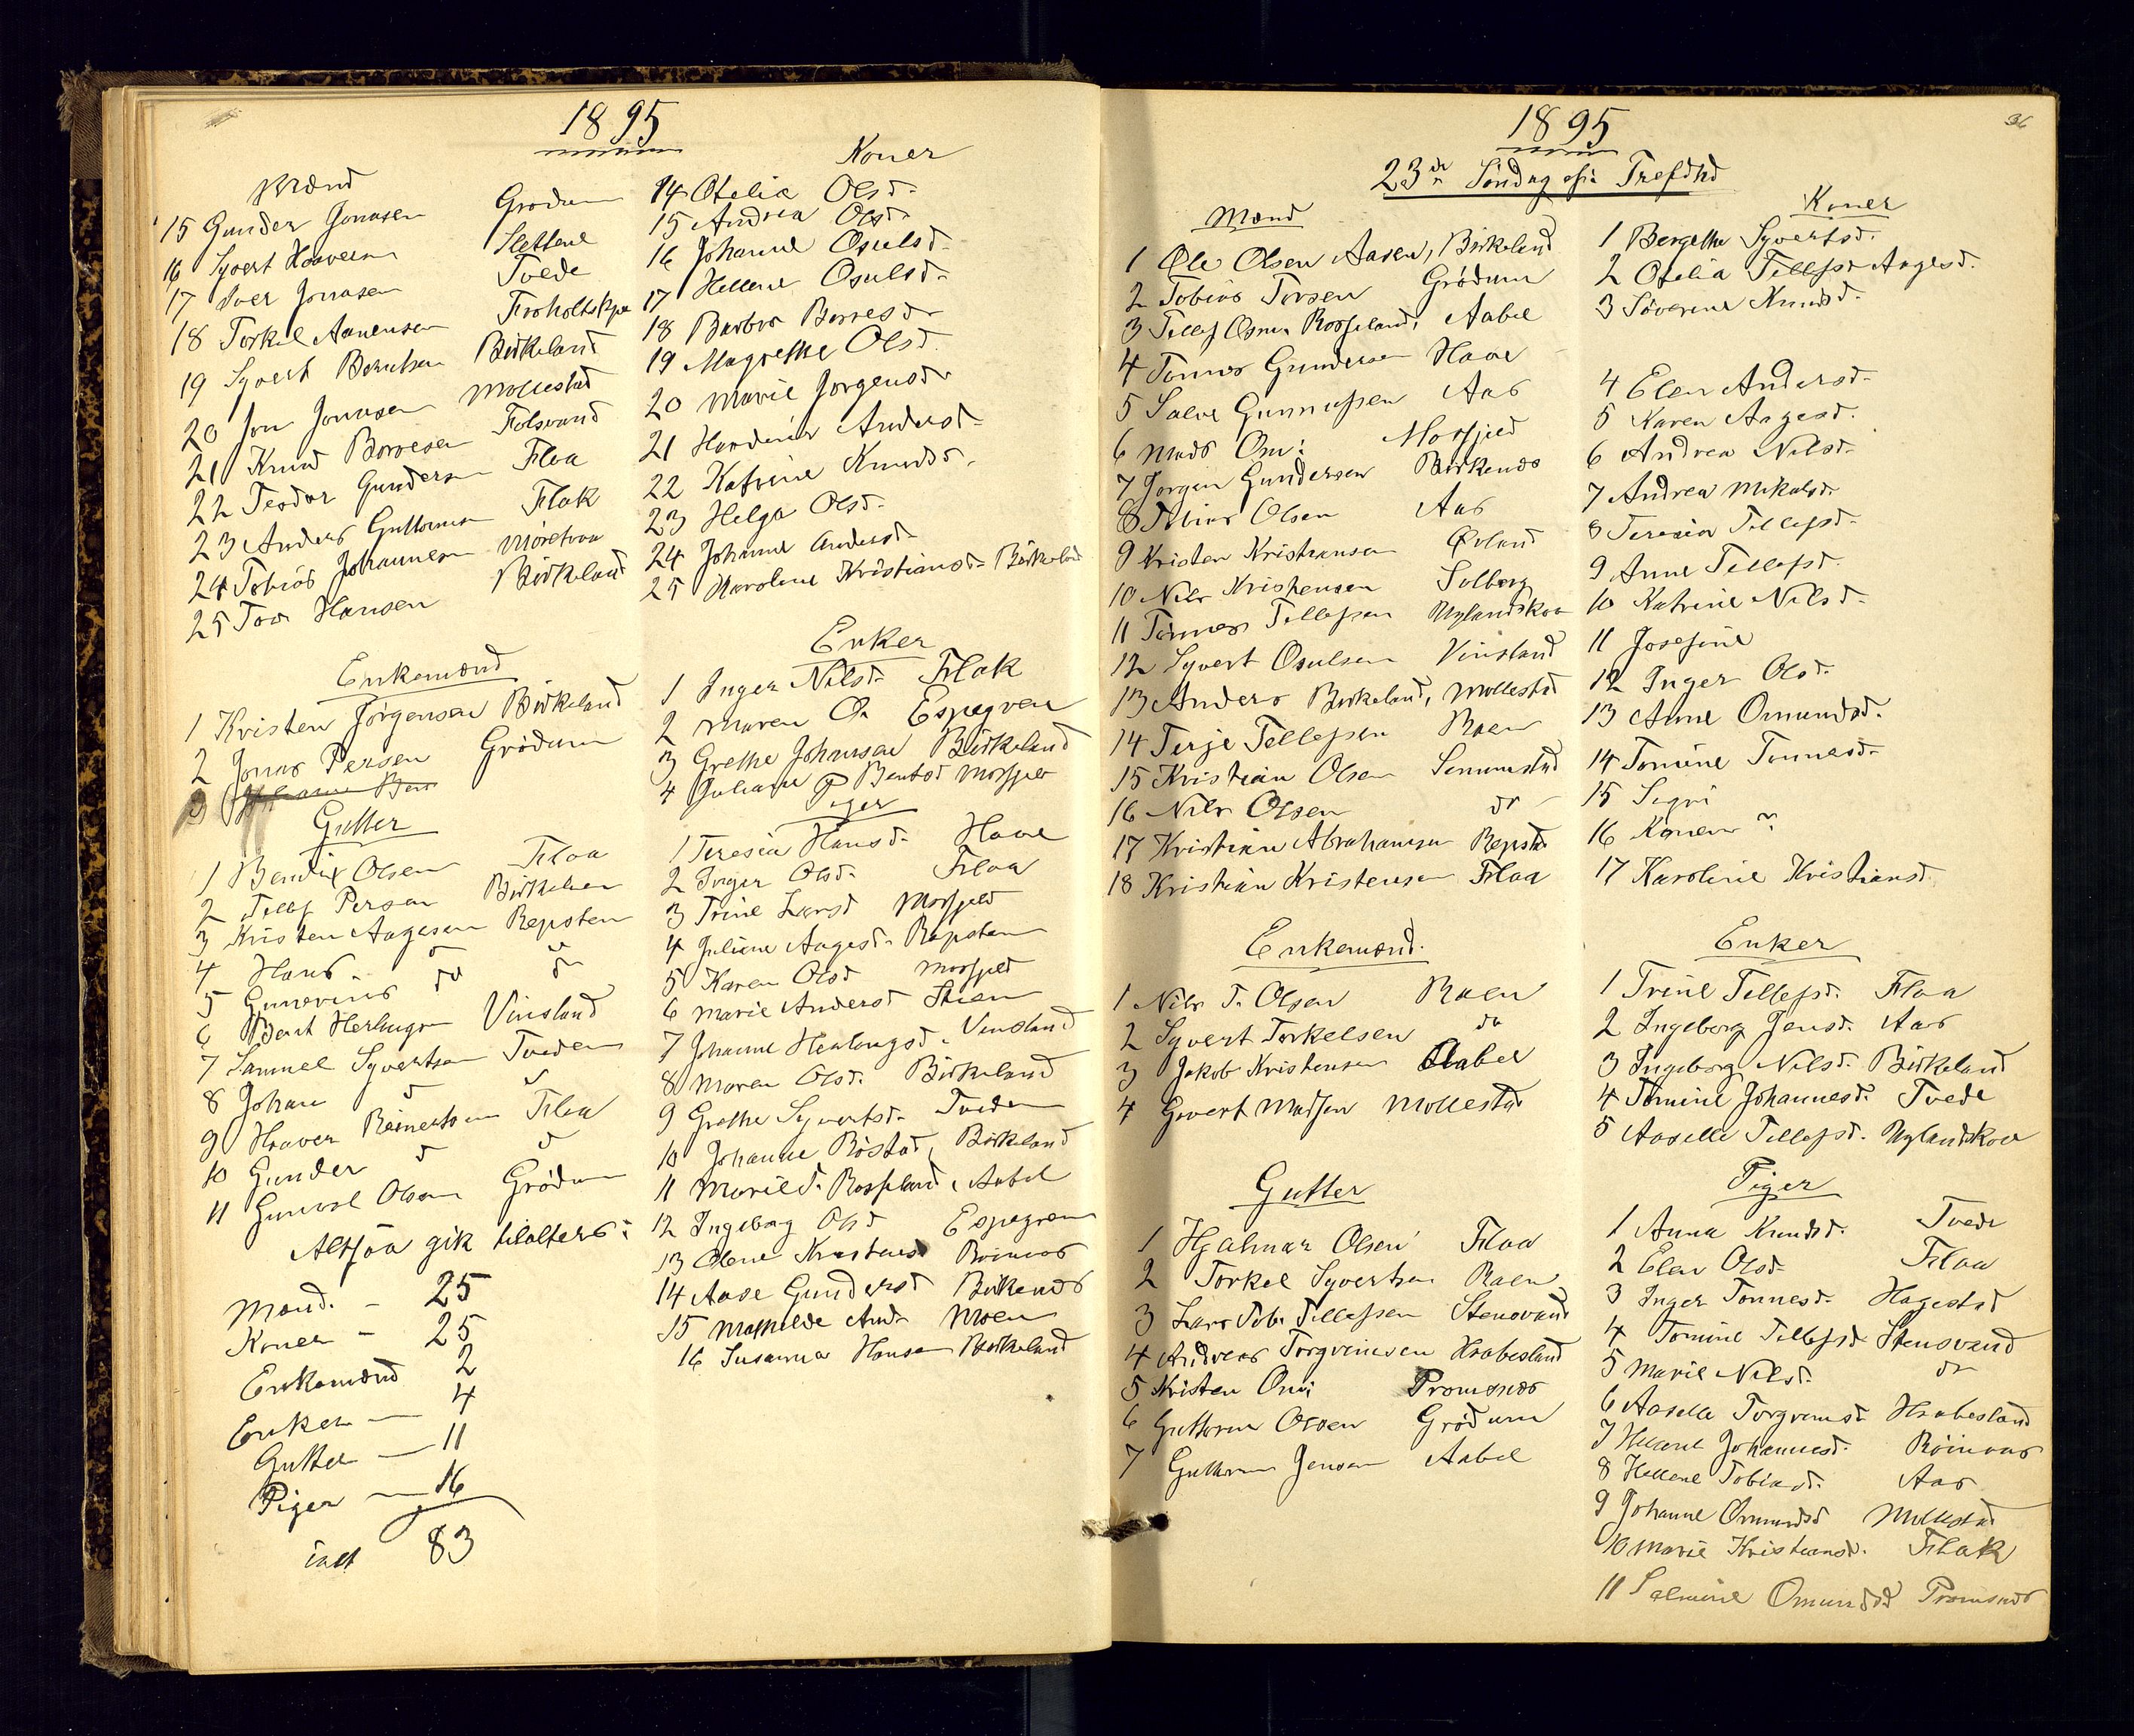 1895
Mænd
Koner
15 Gunder Jonasen Grødum
16 Syvert Haaversen Slettene
17 Iver Jonasen Tvede
18 Torkel Aanensen
19 Syvert Berntsen Birkeland
20 Jon Jonasen Mollestad
21 KnudBorresen
22 Teodor Gundersen Flaa
23 Anders Guttormsen Flak
24 Tobias Johannesen
25 Tor Hansen Birkeland
14 Otelia Olsd.
15 Andrea Olsd.
16 Johanne Osulsd.
17 Hellene Osulsd.
18 Barbro Borresd.
19 Magrethe Olsd.
20 Marie Jørgensd.
21 Andersd.
22 Katrine Knudsd.
23 Helga Olsd.
24 Johanne Andersd.
25 Karoline Kristiansd. Birkeland
Enkemænd
1 Kristen Jörgensen Birkeland
2 Jonas Persen Grödum
3
Gutter
1 Bendix Olsen Flaa
2 Tellef Persen Birkeland
3 Kristen Aagesen Repsten
4 Hans. d d
5 Gunerius do do
6 Bent Herlugsen Vinsland
7 Samuel Syvertsen Tveden
8 Johan d d
9 Haaver Reinertsen Flaa
10 Gunder d d
11 Gunvel Olsen Grödum
Altsaa gik tilalters:
Mænd. - 25
Koner - 25
Enkemænd 2
Enker — 4
Gutter — 11
Piger — 16
ialt 83
Enker
1 Inger Nilsd. Flak
2 Maren O. Espegren
3 Grethe Johansen Birkeland
4 Juliane Bentsd Mosfjeld
Piger
1 Teresia Hansd. Haave
2 Inger Olsd. Flaa
3 Trine Larsd Mosfjeld
4 Juliane Aagesd. Repsten
5 Karen Olsd Mosfjeld
6 Marie Andersd Stien
7 Johanne Herlougsd. Vinsland
8 Maren Olsd. Birkeland
9 Grethe Syvertsd. Tveden
10 Johanne Röstad, Birkeland
11 Marie T. Rosseland, Aabel
12 Ingeborg Olsd Espegren
13 Olene Kristensd
14 Aase Gundersd Birkenes
15 Mathilde And. Moen
16 Susanna Hansen Birkeland
36
1895
23de Söndag efter Trefdhd
Mænd
Koner
1 Ole Olsen Aasen, Birkeland
2 Tobias Torsen Grödum
3 Tellef Osm. Rosseland, Aabel
4 Tønnes Gundersen Haave
5 Salve Gunnufsen Aas
6 Mads Om: Mosfjeld
7 Jørgen Gundersen Birkenes
8 Tobias Olsen Aas
9 Kristen Kristiansen
10 Nils Kristensen Solberg
11 Tønnes Tellefsen Uglandskoa
12 Syvert Osulsen Vinsland
13 Anders Birkeland, Mollestad
14 Terje Tellefsen Raen
15 Kristian Olsen Senumstad
16 Nils Olsen do
17 Kristian Abrahamsen Repstad
18 Kristian Kristensen Flaa
1 Bergethe Syvertsd.
2 Otelia Tellefsd Aagesd.
3 Søverine Knudsd.
4 Elen Andersd.
5 Karen Aagesd.
6 Andrea Nilsd.
7 Andrea Mikalsd.
8 Teresia Tellefsd.
9 Anne Tellefsd.
10 Katrine Nilsd.
11 Josefine
12 Inger Olsd.
13 Anne Omundsd.
14 Tomine Tønnesd.
15 Sigri
16 Konen ?
17 Karoline Kristiansd.
Enkemænd.
1 Nils T. Olsen Raen
2 Syvert Torkelsen do
3 Jakob Kristensen Aabel
4 Govert Madsen Mollestad
Enker
1 Trine Tellefsd. Flaa
2 Ingeborg Jensd. Aas
3 Ingeborg Nilsd. Birkeland
4 Tomine Johannesd. Tvede
5 Aaselle Tellefsd. Uglandskoa
Gutter
1 Hjalmar Olsen Flaa
2 Torkel Syvertsen Raen
3 Lars Tob. Tellefsen Stensvand
4 Andreas Torgrimsen Hrabesland
5 Kristen Om: Promsnes
6 Guttorm Olsen Grödum
7 Guttorm Jensen Aabel
Piger
1 Anna Knudsd. Tvede
2 Elen Olsd. Flaa
3 Inger Tønnesd. Hagestad
4 Tomine Tellefsd. Stensvand
5 Marie Nilsd. do
6 Aaselle Torgrimsd. Hrabesland
7 Johannesd. Röinaas
8 Hellene Tobiasd. Aas
9 Johanne Omundsd Mollestad
10 Marie Kristiansd. Flak
11 Salmine Omundsd Promsnes